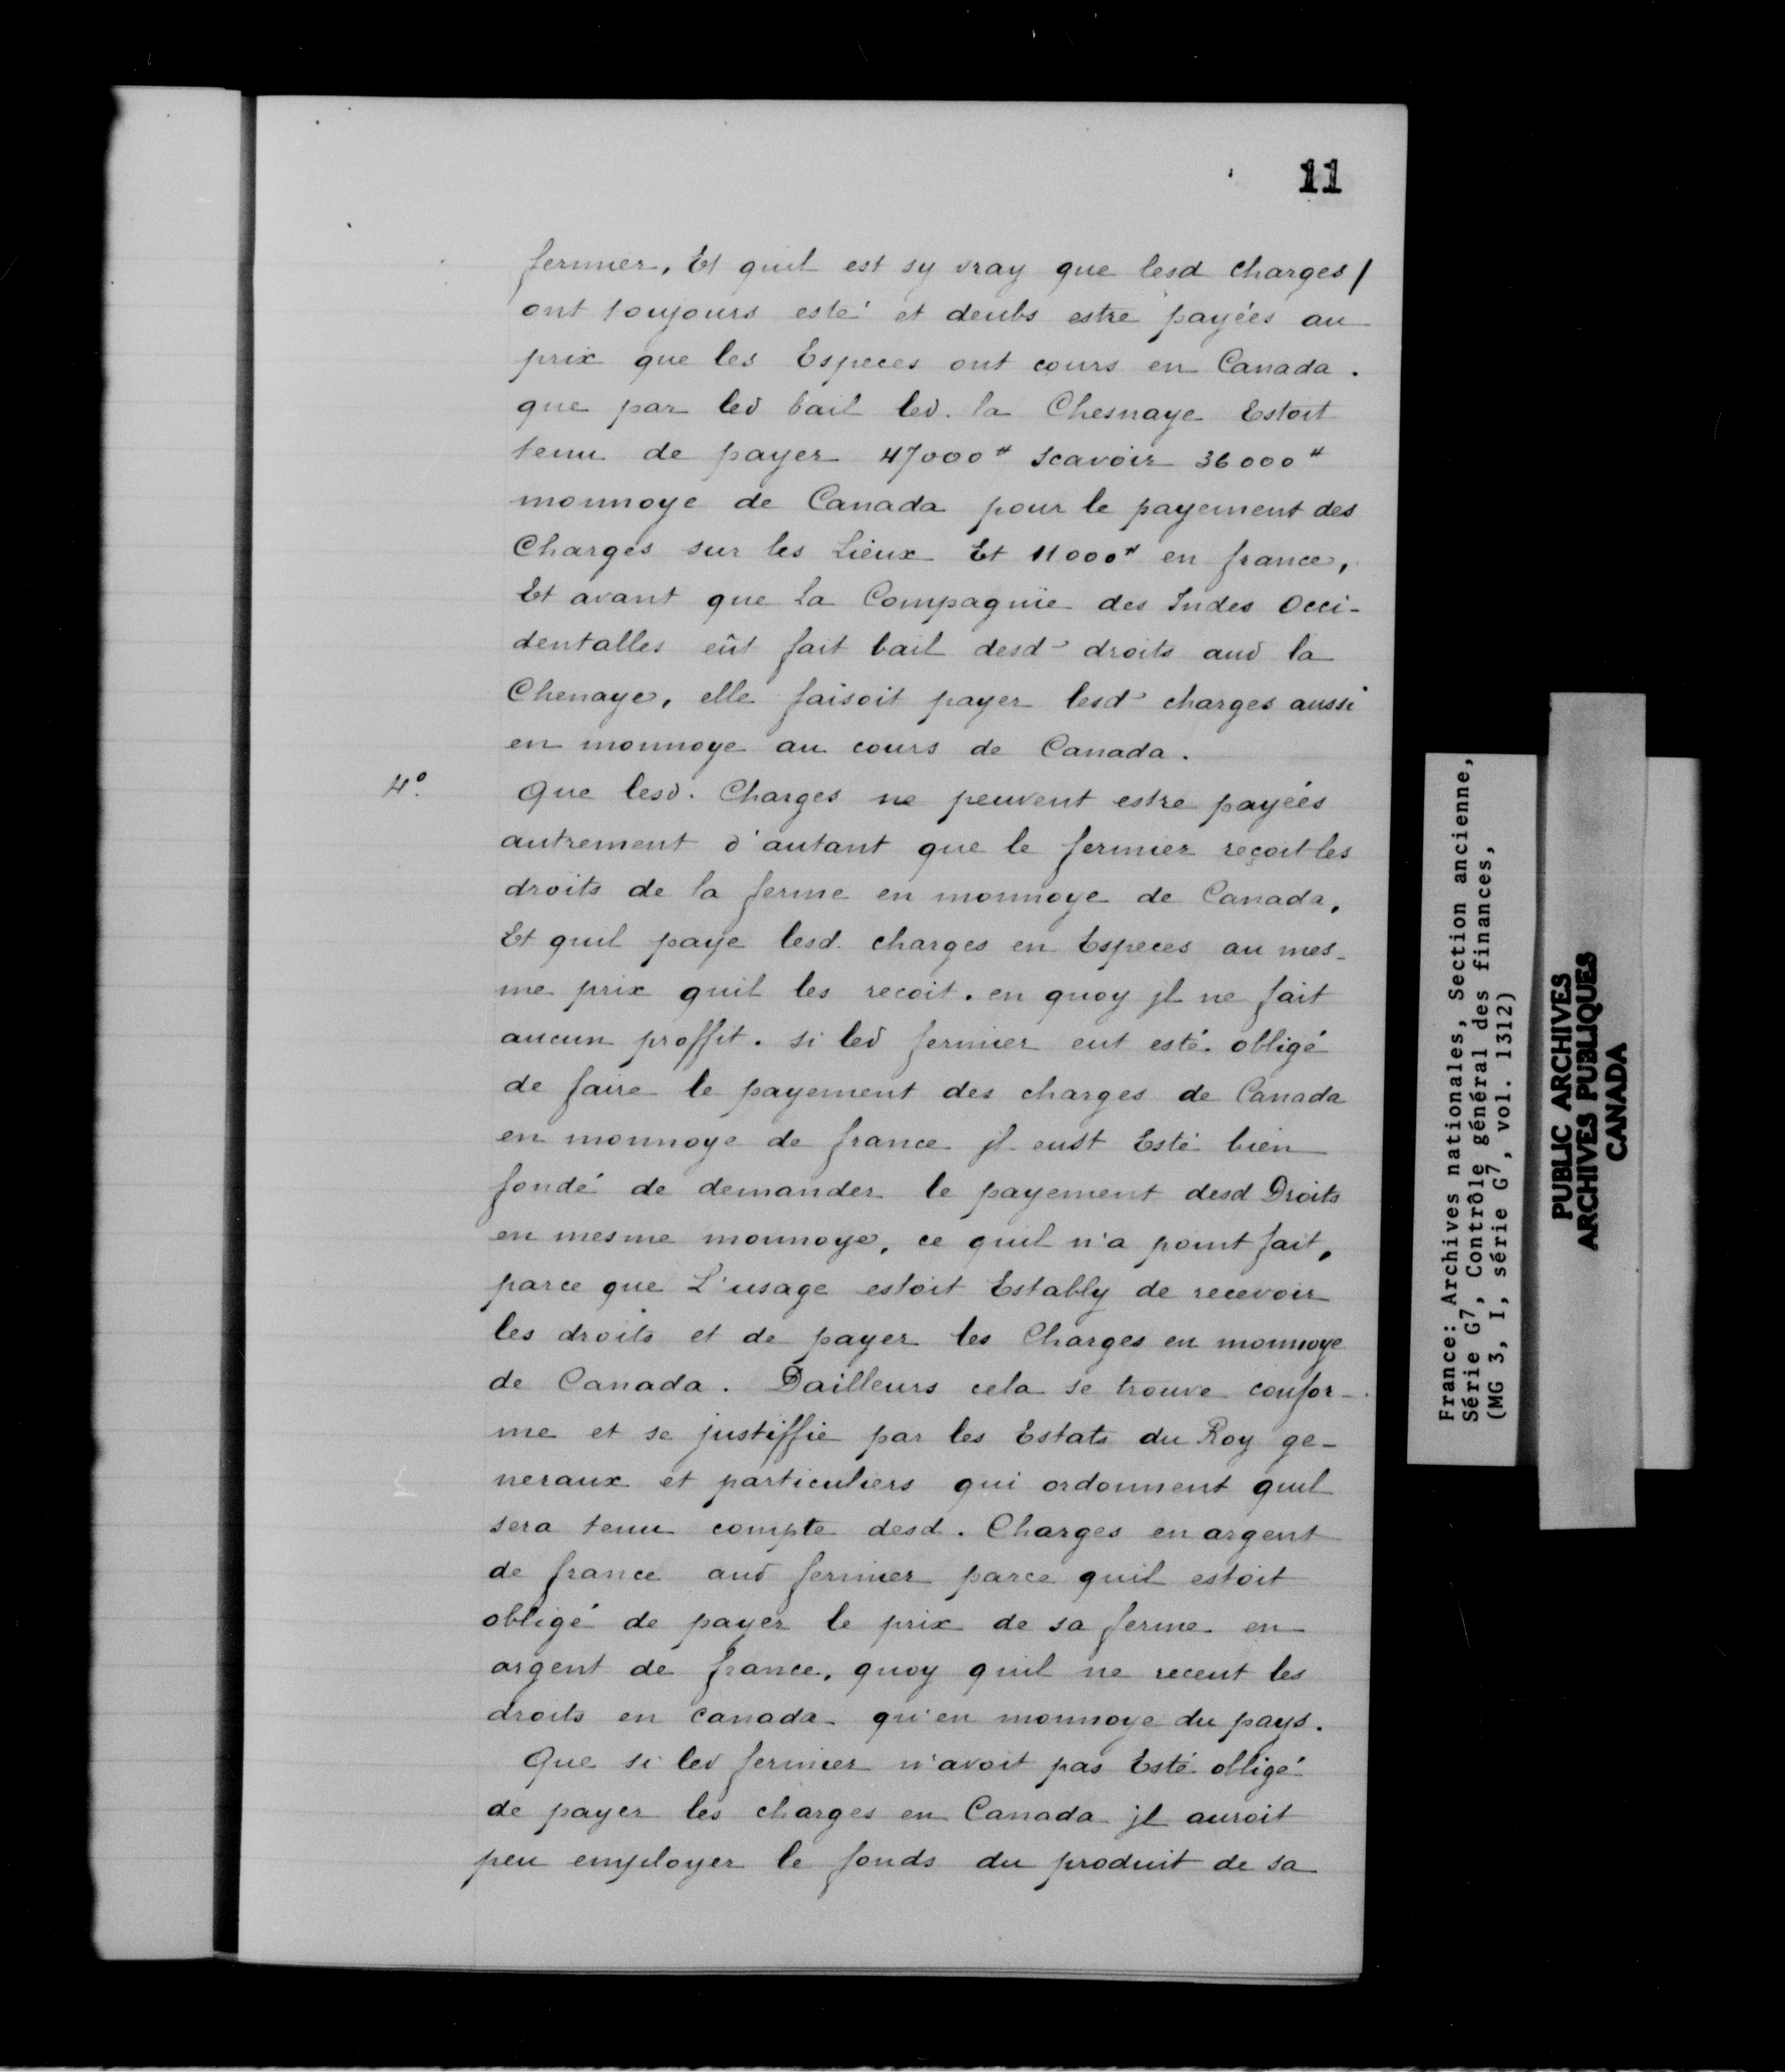 11
fermier, Et quil est sy vray que lesd charges/
ont toujours esté et deubs estre payées au
prix que les Especes ont cours en Canada.
que par led bail led. la Chesnaye Estoit
tenu de payer 47000# scavoir 36000#
monnoye de Canada pour le payement des
Charges sur les Lieux Et 11000# en france,
Et avant que La Compagnie des Indes Occi-
dentalles eût fait bail desd droits aud la
Chenaye, elle faisoit payer lesd charges aussi
en monnoye au cours de Canada.
4º. Que lesd. Charges ne peuvent estre payées
autrement d'autant que le fermier reçoit les
droits de la ferme en monnoye de Canada,
Et quil paye lesd. charges en Especes au mes-
me prix quil les recoit. en quoy jl ne fait
aucun proffit. si led fermier eut esté obligé
de faire le payement des charges de Canada
en monnoye de france jl eust Esté bien
fondé de demander le payement desd Droits
en mesme monnoye, ce quil n'a point fait,
parce que L'usage estoit Estably de recevoir
les droits et de payer les Charges en monnoye
de Canada. Dailleurs cela se trouve confor-
me et se justiffie par les Estats du Roy ge-
neraux et particuliers qui ordonnent quil
sera tenu compte desd. Charges en argent
de france aud fermier parce quil estoit
obligé de payer le prix de sa ferme en
argent de france, quoy quil ne receut les
droits en Canada qu'en monnoye du pays.
Que si led fermier n'avoit pas Esté obligé
de payer les charges en Canada jl auroit
peu employer le fonds du produit de sa
France: Archives nationales, Section ancienne,
Série G7, Contrôle général des finances,
(MG 3, I, série G7, vol. 1312)
PUBLIC ARCHIVES
ARCHIVES PUBLIQUES
CANADA